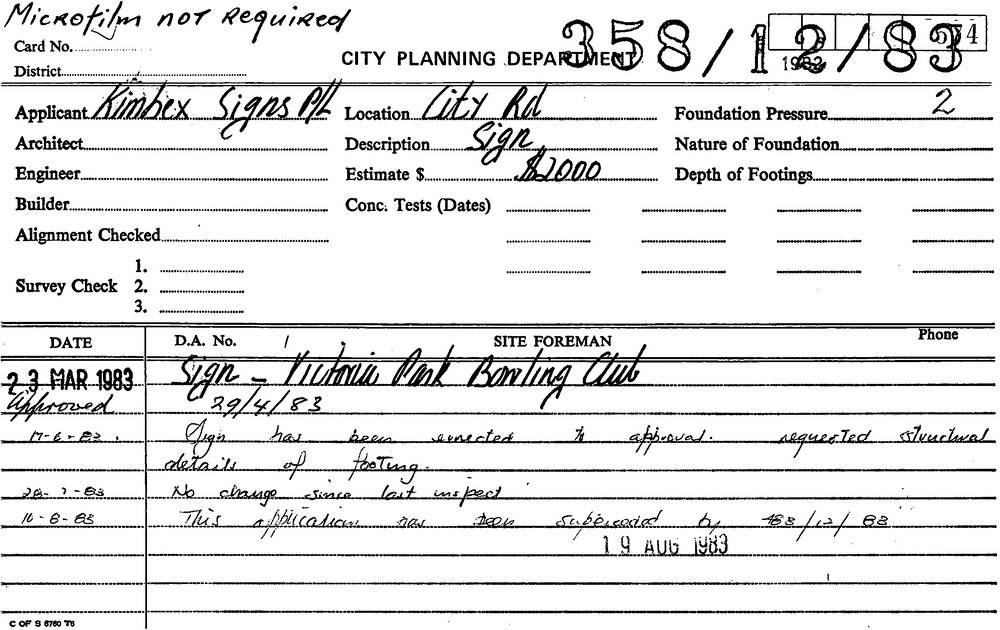 Microfilm not Required
Card No.
358/12/83
574
1982
CITY PLANNING DEPARTMENT
District
Applicant Kimbex Signs P/L Location City Rd Foundation Pressure 2
Architect Description Sign Nature of Foundation
Engineer Estimate $ $2000 Depth of Footings
Builder Conc. Tests (Dates)
Alignment Checked
1.
Survey Check 2.
3.
DATE D.A. No. SITE FOREMAN Phone
23 MAR 1983 Sign - Victoria Park Bowling Club
Approved 29/4/83
17-6-83. Sign has been errected to approval. requested structural
details of footing.
28-7-83 No change since last inspect
16-8-83 This application has been superceeded by /12/83
19 AUG 1983
C OF S 6760 T6